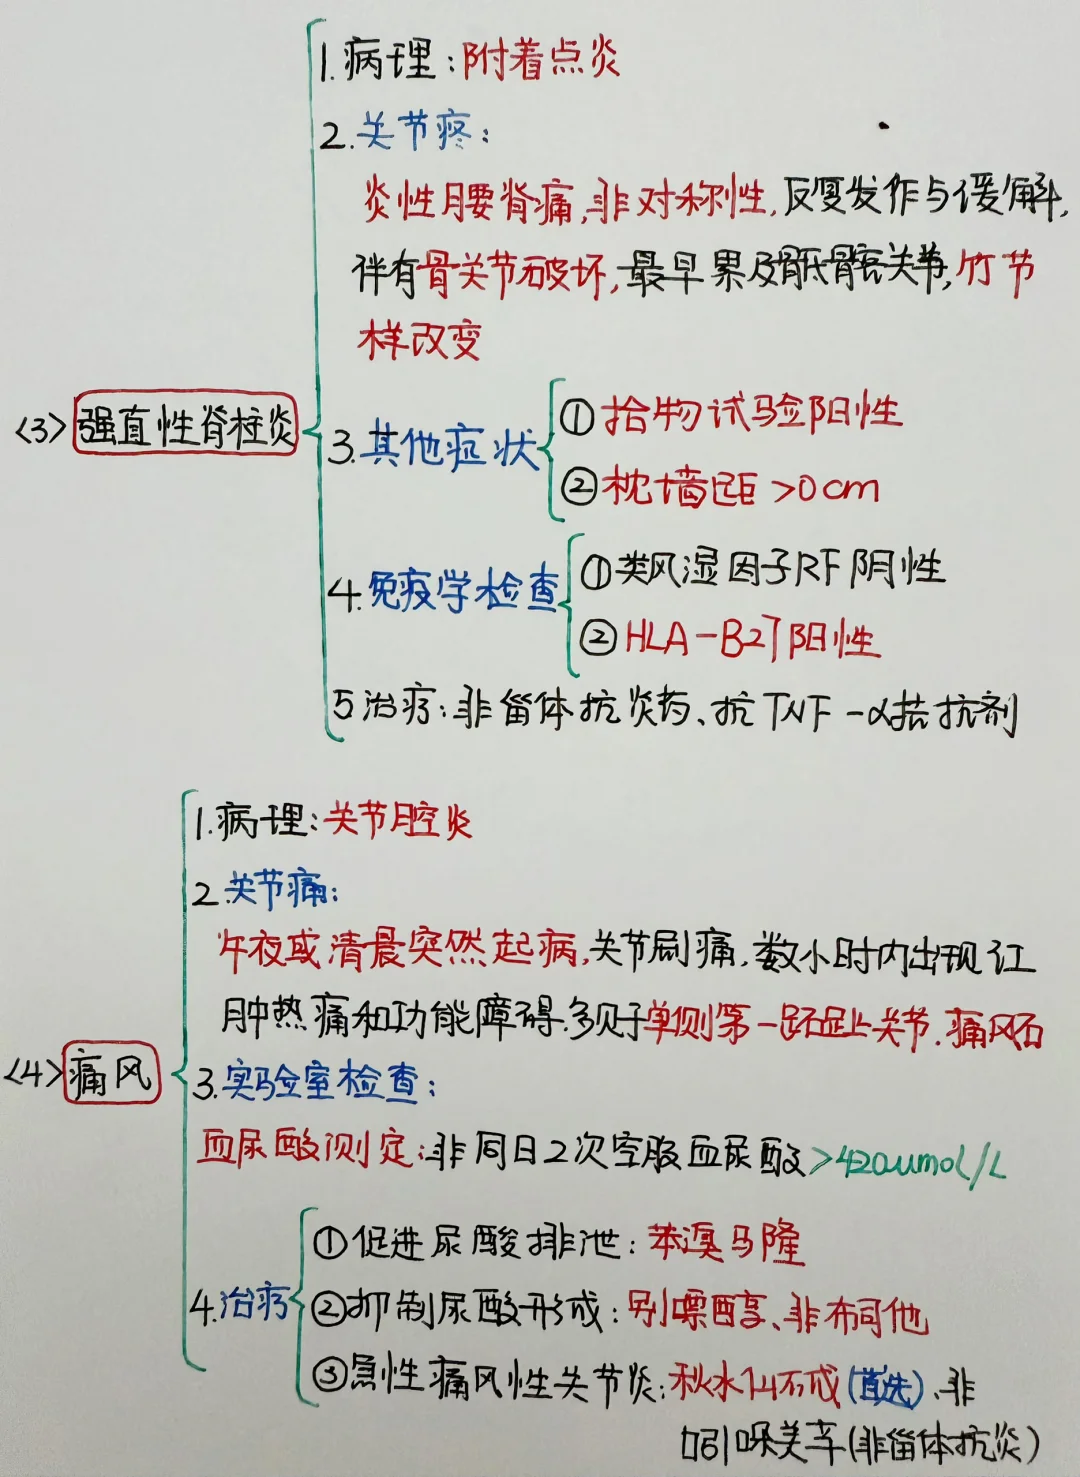 1.病理:附着点炎
2.关节疼:
炎性腰脊痛,非对称性,反复发作与缓解,
伴有骨关节破坏,最早累及骶髂关节,竹节
样改变
<3>强直性脊柱炎
3.其他症状
①拾物试验阳性
②枕墙距>0cm
4.免疫学检查
①类风湿因子RF阴性
②HLA-B27阳性
5治疗:非甾体抗炎药、抗TNF-α拮抗剂
1.病理:关节腔炎
2.关节痛:
午夜或清晨突然起病,关节剧痛,数小时内出现红
肿热痛和功能障碍.多见于单侧第一跖趾关节.痛风石
<4>痛风
3.实验室检查:
血尿酸测定:非同日2次空腹血尿酸>420umol/L
4.治疗
①促进尿酸排泄:苯溴马隆
②抑制尿酸形成:别嘌醇、非布司他
③急性痛风性关节炎:秋水仙碱(首选)、非
吲哚美辛(非甾体抗炎)